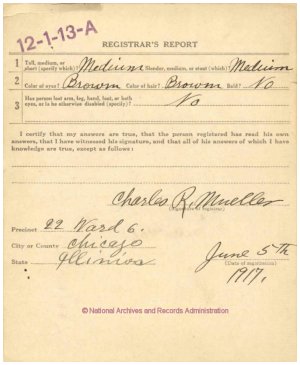 12-1-13-A
REGISTRAR'S REPORT
1 Tall, medium, or short (specify which)? Medium Slender, medium, or stout (which)? Medium
2 Color of eyes? Brown Color of hair? Brown Bald? No
3 Has person lost arm, leg, hand, foot, or both eyes, or is he otherwise disabled (specify)? No
I certify that my answers are true, that the person registered has read his own
answers, that I have witnessed his signature, and that all of his answers of which I have
knowledge are true, except as follows:
Charles R. Mueller
(Signature of registrar)
Precinct 22 Ward 6.
City or County Chicago
State Illinios
June 5th
(Date of registration)
1917.
© National Archives and Records Administration